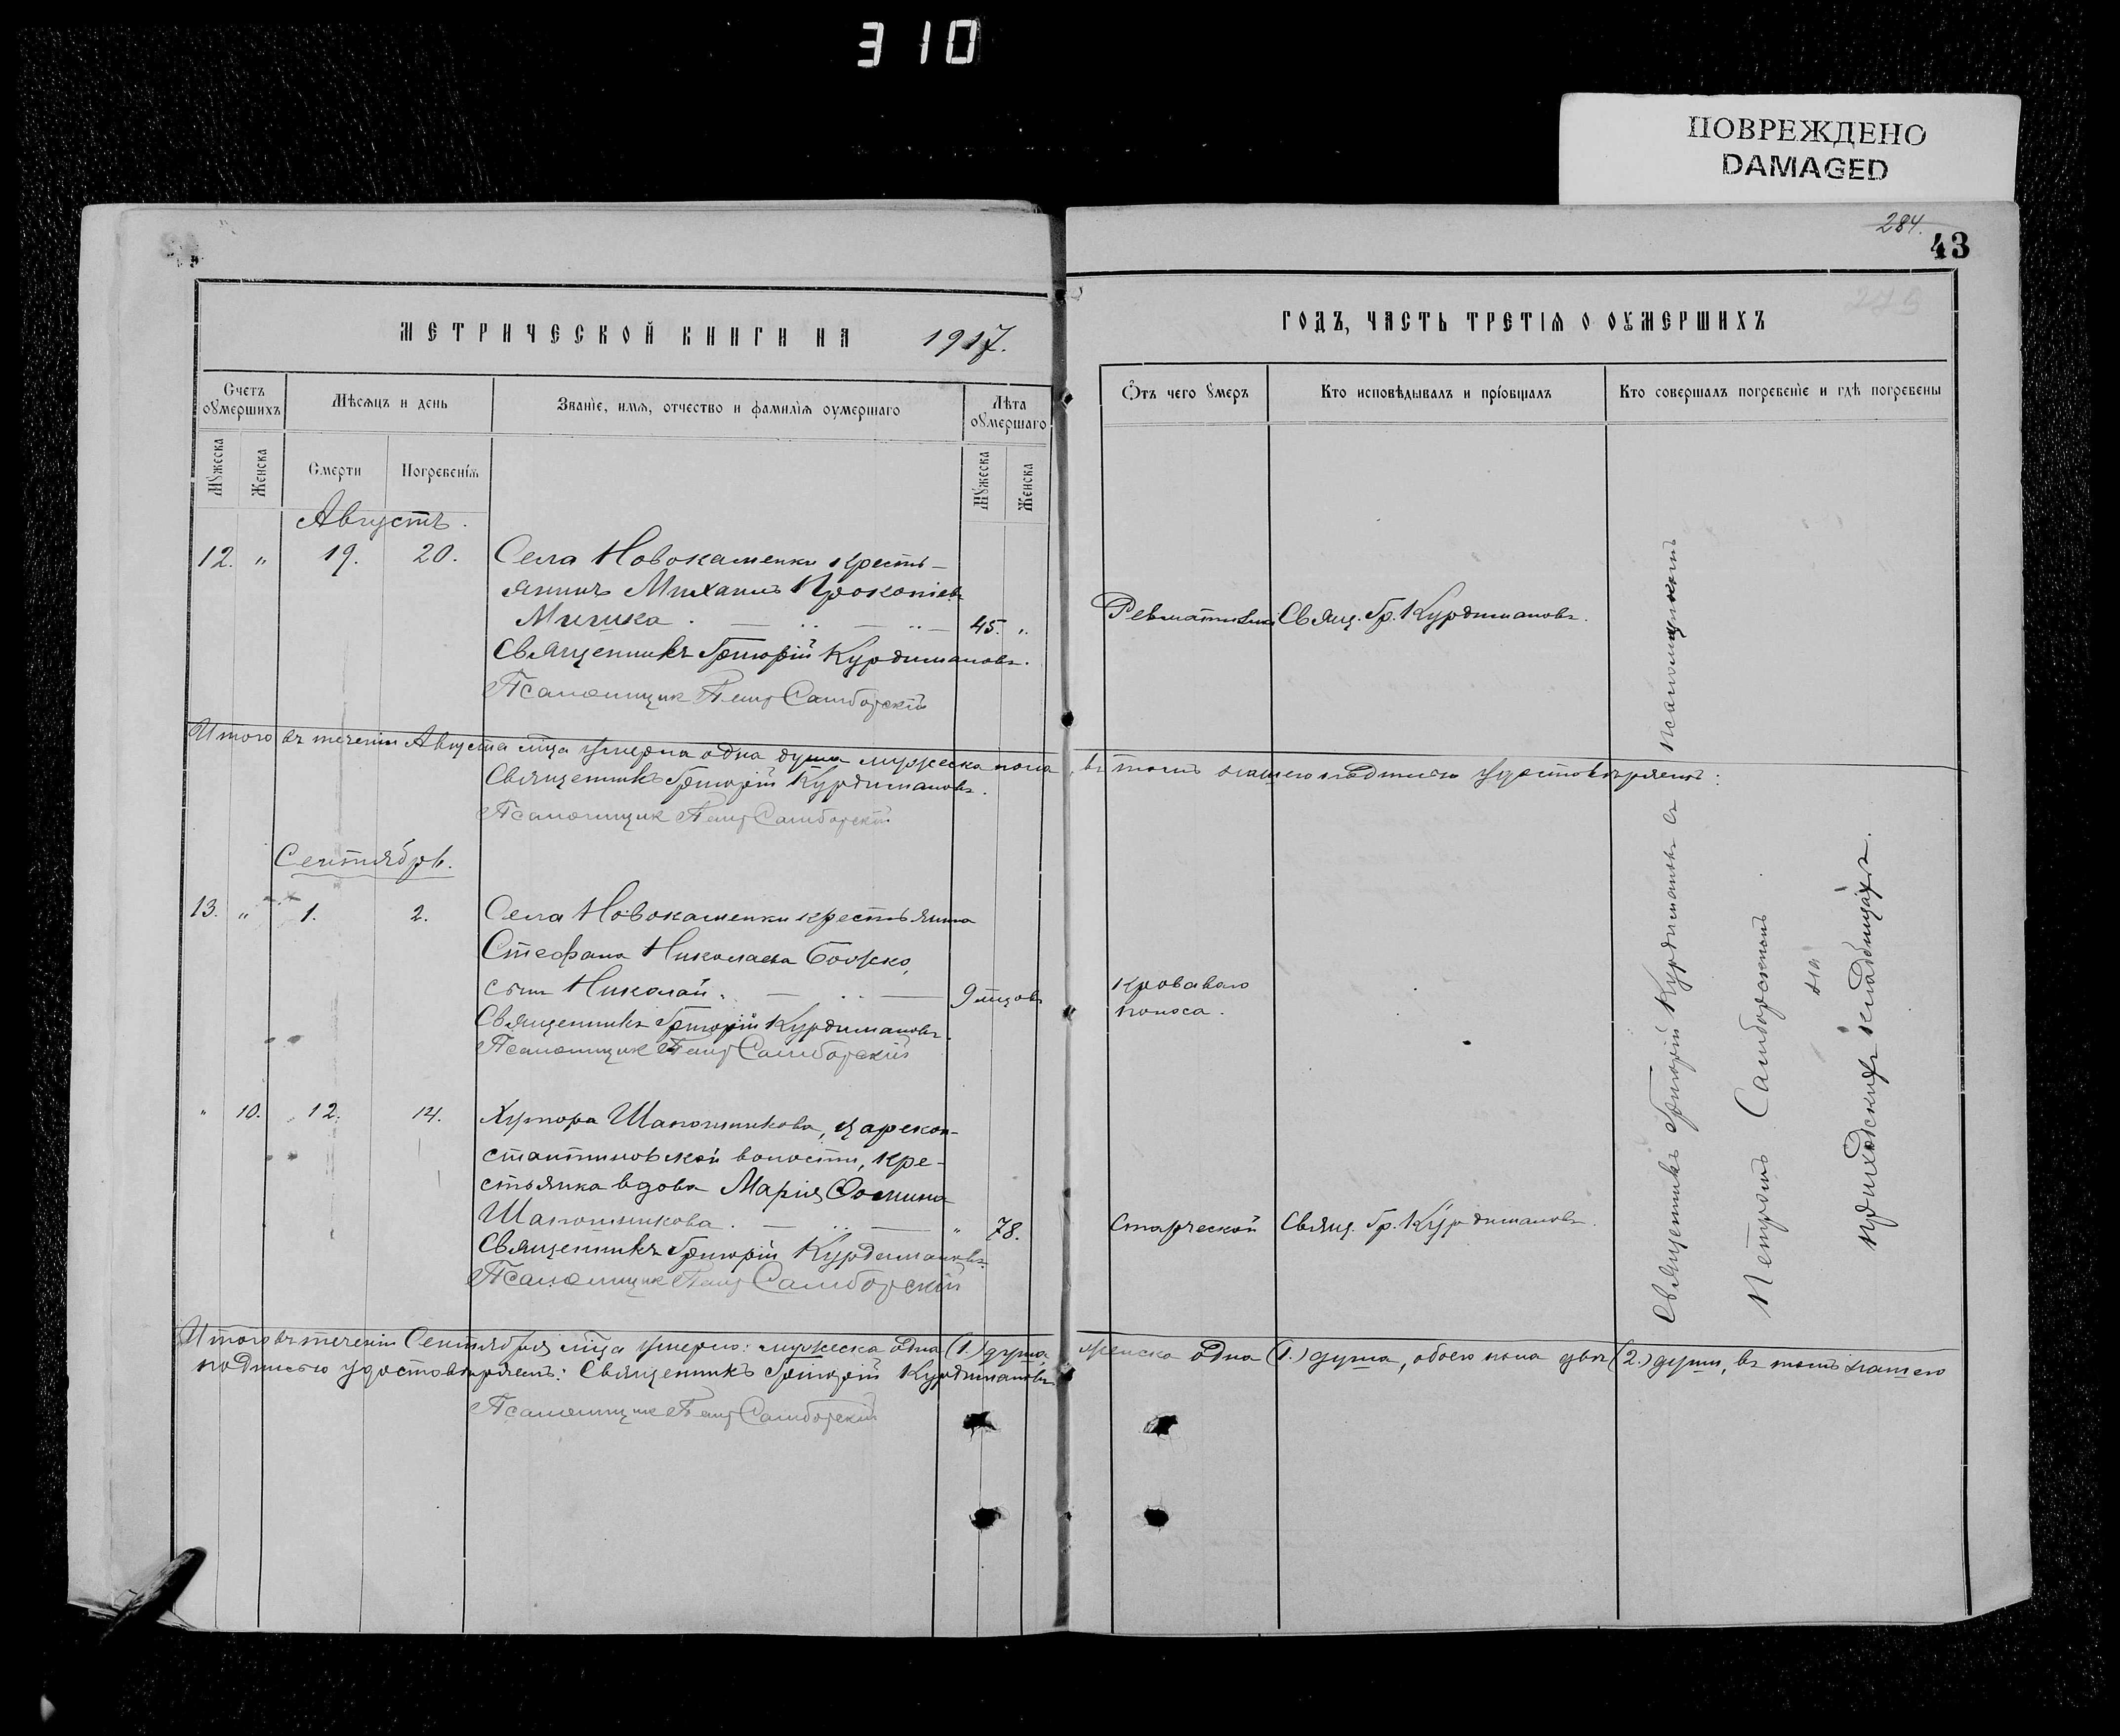 310
ПОВРЕЖДЕНО
DAMAGED
284.
43
МЕТРИЧЕСКОЙ КНИГИ НА 1917.
ГОДЪ, ЧАСТЬ ТРЕТІЯ О ОУМЕРШИХЪ
Счетъ оумершихъ
Мѣсяцъ и день
Званіе, имя, отчество и фамилія оумершаго
Лѣта оумершаго
Отъ чего умеръ
Кто исповѣдывалъ и пріобщалъ
Кто совершалъ погребеніе и гдѣ погребены
Мужеска
Женска
Смерти
Погребенія
Мужеска
Женска
Августъ.
12. " 19. 20. Села Новокаменки кресть-
янинъ Михаилъ Прокопіевъ
Мишка. 45. " Ревматизма Свящ. Гр. Курдимановъ.
Священникъ Григорій Курдимановъ.
Псаломщик Петр Самборскій
Итого въ теченіи Августа мѣца умерла одна душа мужеска пола, въ томъ нашею подписью удостовѣряемъ:
Священникъ Григорій Курдимановъ.
Псаломщик Петр Самборскій
Сентябрь.
13. " 1. 2. Села Новокаменки крестьянина
Стефана Николаева Божко,
сынъ Николай. 9 мцовъ
Кроваваго
поноса.
Священникъ Григорій Курдимановъ.
Псаломщик Петр Самборскій
" 10. 12. 14. Хутора Шапошникова, Царекон-
стантиновской волости, кре-
стьянка вдова Марія Фомина
Шапошникова. " 78. Старческой Свящ. Гр. Курдимановъ.
Священникъ Григорій Курдимановъ.
Псаломщик Петр Самборскій
Священникъ Григорій Курдимановъ съ псаломщикомъ
Петромъ Самборскимъ.
на
приходскихъ кладбищахъ.
Итого въ теченіи Сентября мѣца умерло: мужеска одна (1.) душа, женска одна (1.) душа, обоего пола двѣ (2.) души, въ томъ нашею
подписью удостовѣряемъ: Священникъ Григорій Курдимановъ
Псаломщик Петр Самборскій